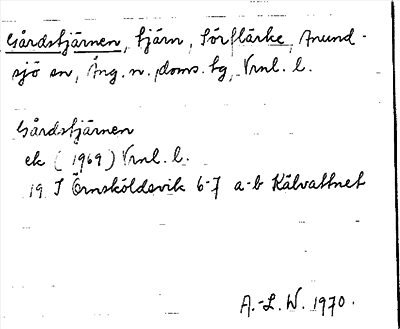 Gårdstjärnen, tjärn, Sörflärke, Anund-
sjö sn, Ång. n. doms. tg, Vrnl. l.
Gårdstjärnen
ek (1969) Vrnl. l.
19 I Örnsköldsvik 6-7 a-b Kälvattnet
A.-L. W. 1970.